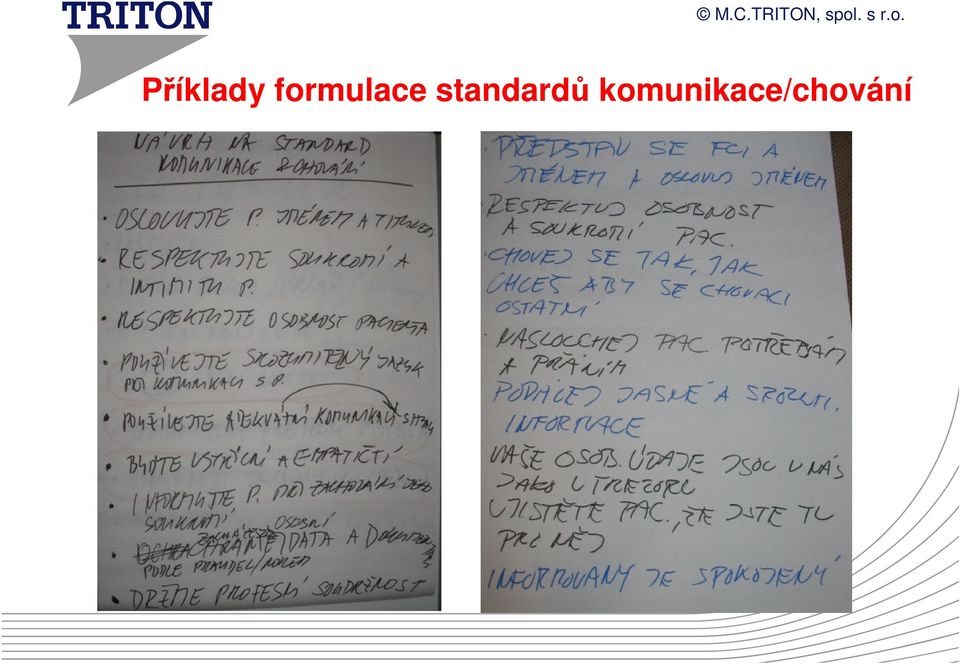 TRITON
© M.C.TRITON, spol. s r.o.
Příklady formulace standardů komunikace/chování
NÁVRH NA STANDARD
KOMUNIKACE & CHOVÁNÍ
• OSLOVUJTE P. JMÉNEM A TITULEM
• RESPEKTUJTE SOUKROMÍ A
INTIMITU P.
• RESPEKTUJTE OSOBNOST PACIENTA
• POUŽÍVEJTE SROZUMITELNÝ JAZYK
PŘI KOMUNIKACI S P.
• POUŽÍVEJTE ADEKVÁTNÍ KOMUNIKACI
• BUĎTE VSTŘÍCNÍ A EMPATIČTÍ
• INFORMUJTE P. PŘI ZACHOVÁNÍ JEHO
SOUKROMÍ
OSOBNÍ
• CHRAŇTE DATA A
PODLE PRAVIDEL/NOREM
• DRŽME PROFESNÍ SOUDRŽNOST
• PŘEDSTAV SE FCI A
JMÉNEM A OSLOVUJ JMÉNEM
• RESPEKTUJ OSOBNOST
A SOUKROMÍ PAC.
• CHOVEJ SE TAK, JAK
CHCEŠ ABY SE CHOVALI
OSTATNÍ
• NASLOUCHEJ PAC. POTŘEBÁM
A PŘÁNÍM
PODÁVEJ JASNÉ A SROZUM.
INFORMACE
VAŠE OSOB. ÚDAJE JSOU U NÁS
JAKO V TREZORU
UJISTĚTE PAC., ŽE JSTE TU
PRO NĚJ
INFORMOVANÝ JE SPOKOJENÝ